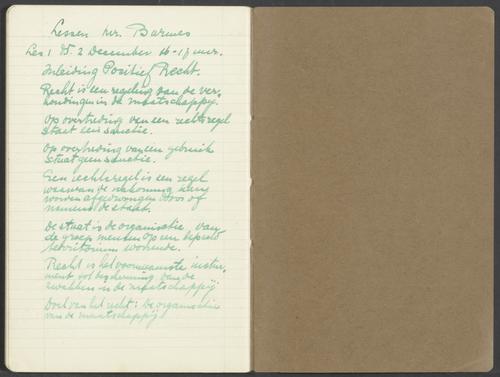 Lessen Mr. Barmes
Les 1 W. 2 December 16-17 uur.
Inleiding Positief Recht.
Recht is een regeling van de ver-
houdingen in de maatschappij.
Op overtreding van een rechtsregel
staat een sanctie.
Op overtreding van een gebruik
staat geen sanctie.
Een rechtsregel is een regel
waarvan de nakoming kan
worden afgedwongen door of
namens de staat.
De staat is de organisatie van
de groep mensen op een bepaald
territorium wonende.
Recht is het voornaamste instru-
ment tot bescherming van de
zwakken in de maatschappij
Doel van het recht: de organisatie
van de maatschappij.